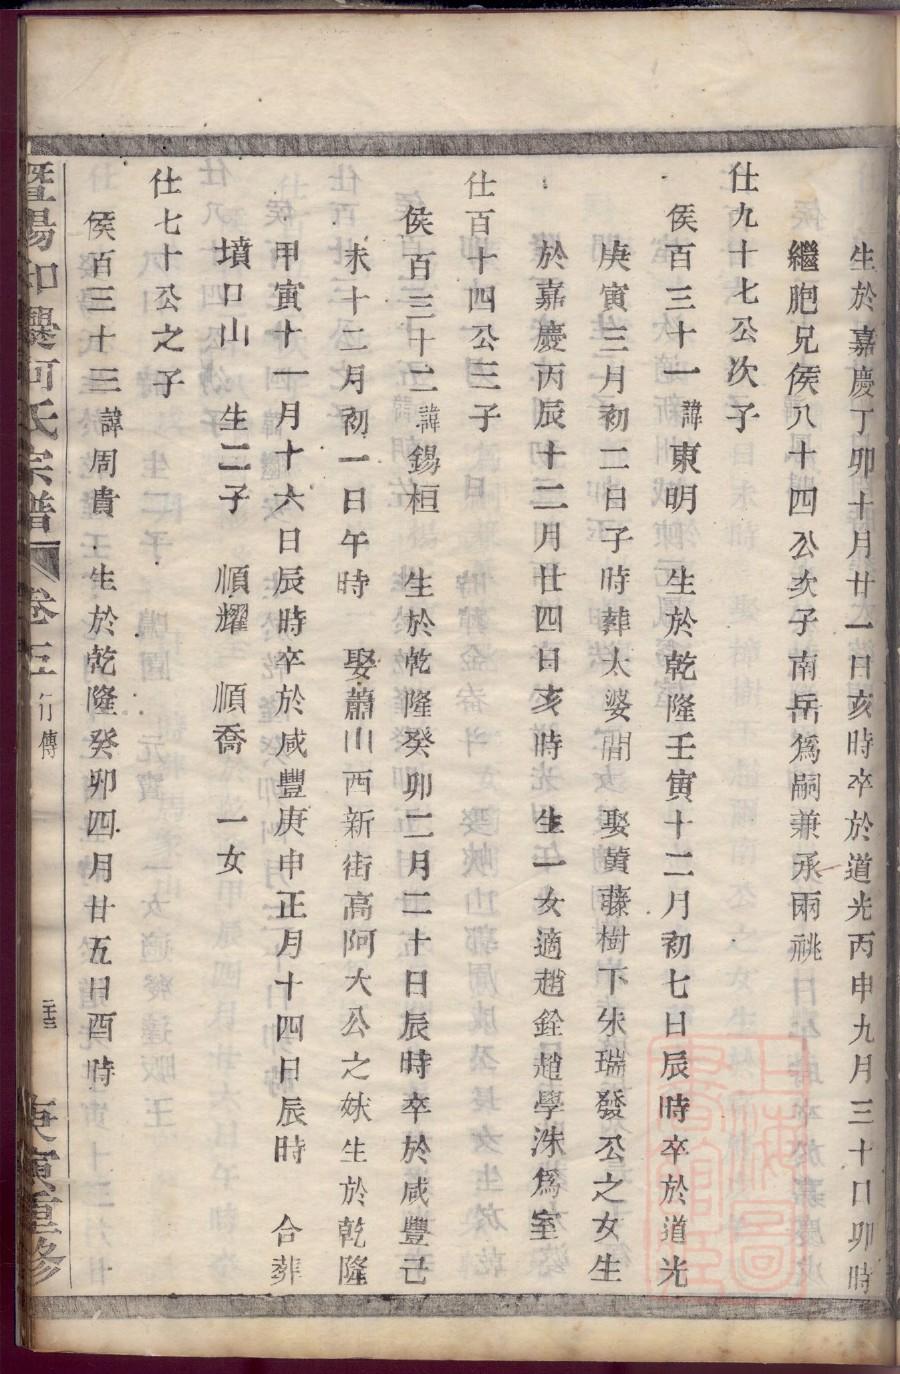 生於嘉慶丁卯十月廿一日亥時卒於道光丙申九月三十日卯時
繼胞兄侯八十四公次子南岳爲嗣兼承兩祧
仕九十七公次子
侯百三十一諱東明 生於乾隆壬寅十二月初七日辰時卒於道光
庚寅三月初二日子時葬太婆間 娶黃藤樹下朱瑞發公之女生
於嘉慶丙辰十二月廿四日亥時 生一女適趙銓趙學洙爲室
仕百十四公三子
侯百三十二諱錫桓 生於乾隆癸卯二月二十日辰時卒於咸豐己
未十二月初一日午時 娶蕭山西新街高阿大公之妹生於乾隆
甲寅十一月十六日辰時卒於咸豐庚申正月十四日辰時 合葬
墳口山 生二子 順耀 順喬 一女
仕七十公之子
侯百三十三諱周貴 生於乾隆癸卯四月廿五日酉時
暨陽和爨何氏宗譜 卷三 行傳 庚寅重修